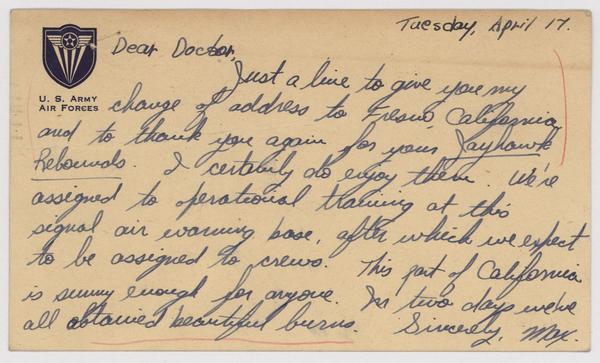 Tuesday, April 17.
Dear Doctor,
U. S. ARMY
AIR FORCES
Just a line to give you my
change of address to Fresno, California
and to thank you again for your Jayhawk
Rebounds. I certainly do enjoy them. We're
assigned to operational training at this
signal air warning base, after which we expect
to be assigned to crews. This part of California
is sunny enough for anyone. In two days we've
all obtained beautiful burns. Sincerely, Max.